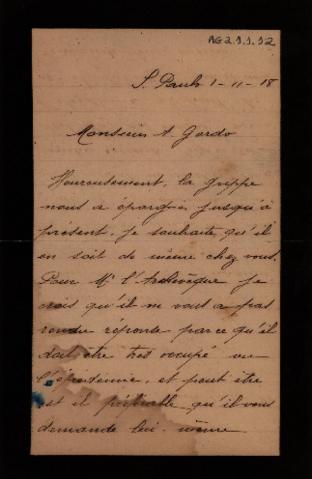 AG2.1.1.12
S. Paulo 1-11-18
Monsieur A. Gordo
Heureusement, la grippe
nous a épargnés jusqu'à
present. Je souhaite qu'il
en soit de même chez vous.
Pour Mr l'Archevêque je
crois qu'il ne vous a pas
rendu réponse parce qu'il
doit être très occupé vu
l'épidemie, et peut être
est il préférable qu'il vous
demande lui-même